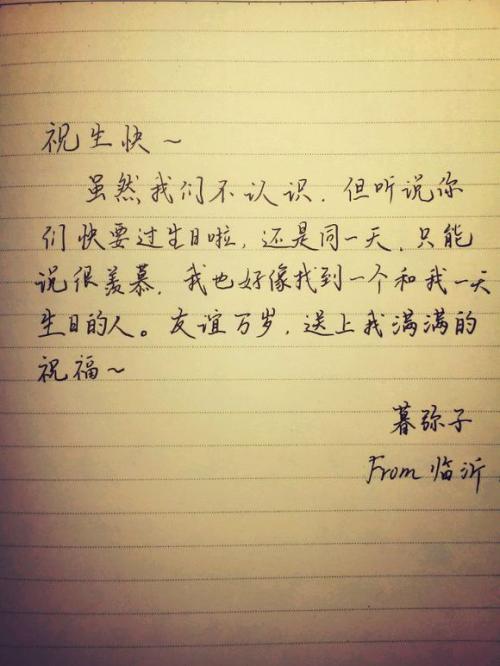 祝生快~
虽然我们不认识，但听说你
们快要过生日啦，还是同一天，只能
说很羡慕，我也好像找到一个和我一天
生日的人。友谊万岁，送上我满满的
祝福~
暮弥子
From 临沂